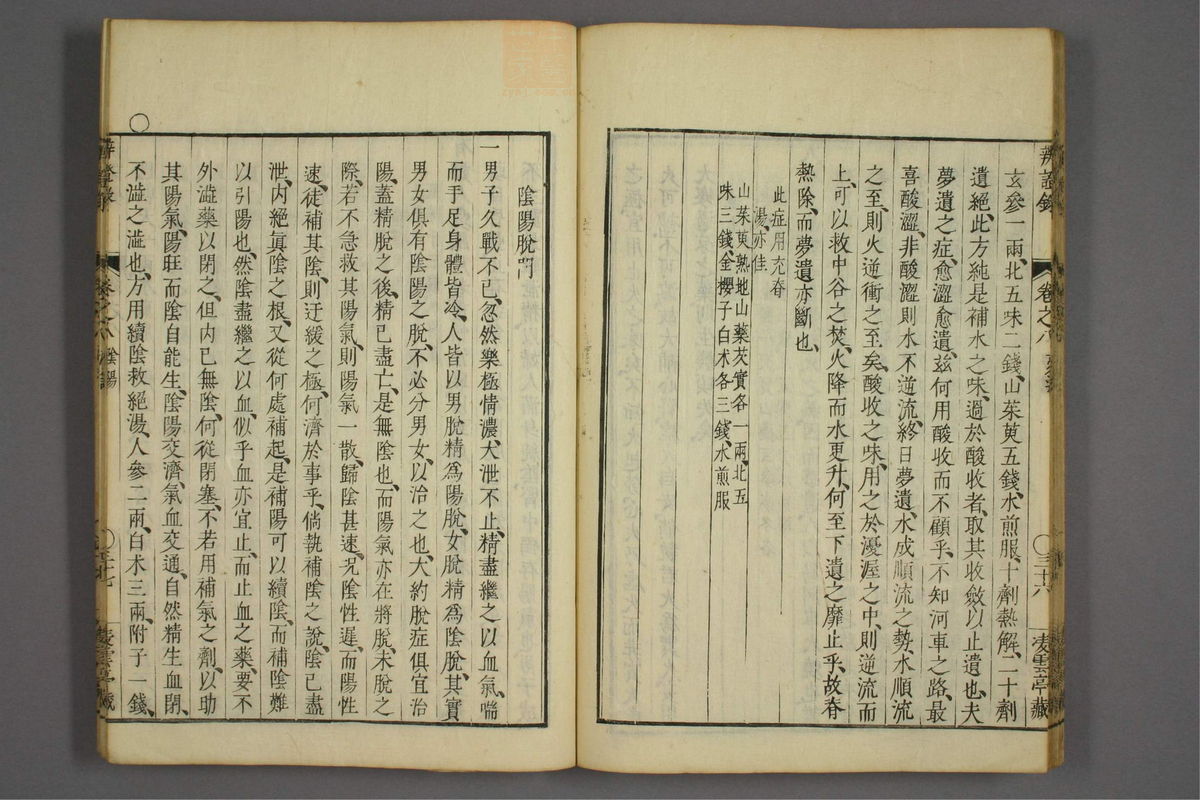 辨證錄 卷之八 三十六 凌雲亭藏
玄參一兩、北五味二錢、山茱萸五錢、水煎服、十劑熱解、二十劑
遺絕、此方純是補水之味、過於酸收者、取其收斂以止遺也、夫
夢遺之症、愈澀愈遺、茲何用酸收而不顧乎、不知河車之路、最
喜酸澀、非酸澀則水不逆流、終日夢遺、水成順流之勢、水順流
之至、則火逆衝之至矣、酸收之味、用之於優渥之中、則逆流而
上、可以救中谷之焚、火降而水更升、何至下遺之靡止乎、故脊
熱除、而夢遺亦斷也、
此症用充脊
湯亦佳
山茱萸熟地山藥芡實各一兩、北五
味三錢、金櫻子白朮各三錢、水煎服
陰陽脫門
一男子久戰不已、忽然樂極情濃、大泄不止、精盡繼之以血、氣喘
而手足身體皆冷、人皆以男脫精爲陽脫、女脫精爲陰脫、其實
男女俱有陰陽之脫、不必分男女以治之也、大約脫症俱宜治
陽、蓋精脫之後、精已盡亡、是無陰也、而陽氣亦在將脫未脫之
際、若不急救其陽氣、則陽氣一散、歸陰甚速、況陰性遲、而陽性
速、徒補其陰、則迂緩之極、何濟於事乎、倘執補陰之說、陰已盡
泄、內絕眞陰之根、又從何處補起、是補陽可以續陰、而補陰難
以引陽也、然陰盡繼之以血、似乎血亦宜止、而止血之藥、要不
外澁藥以閉之、但內已無陰、何從閉塞、不若用補氣之劑、以助
其陽氣、陽旺而陰自能生、陰陽交濟、氣血交通、自然精生血閉、
不澁之澁也、方用續陰救絕湯、人參二兩、白朮三兩、附子一錢、
卷之八 陰陽